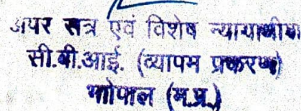 अपर सत्र एवं विशेष न्यायाधीश
सी.बी.आई. (व्यापम प्रकरण)
भोपाल (म.प्र.)